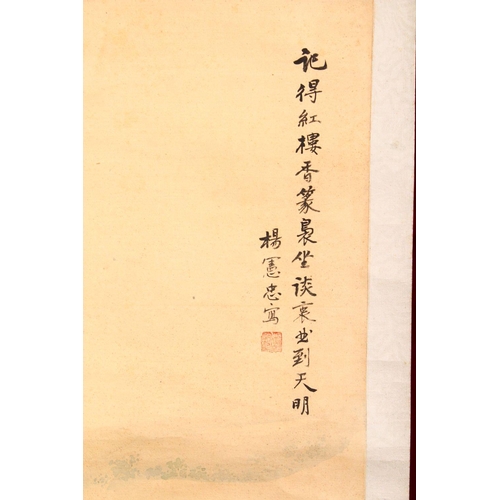 記得紅樓香篆裊坐談衷曲到天明
楊憲忠寫